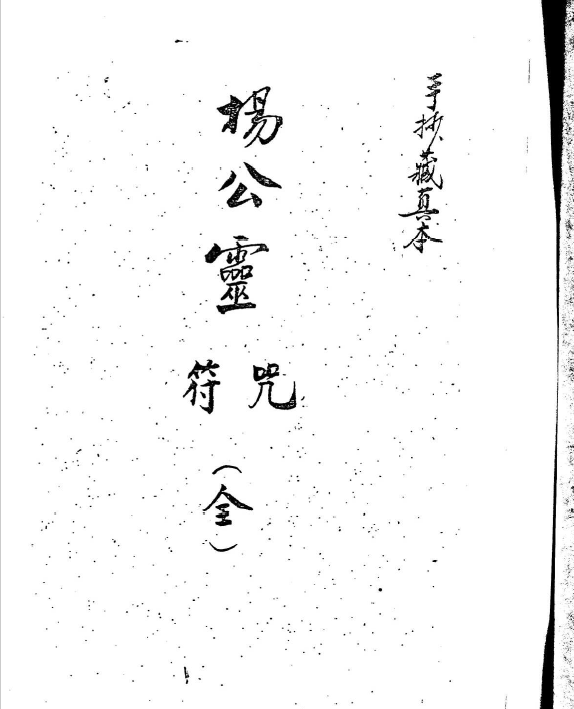 手抄藏真本
楊公靈
咒符
（全）